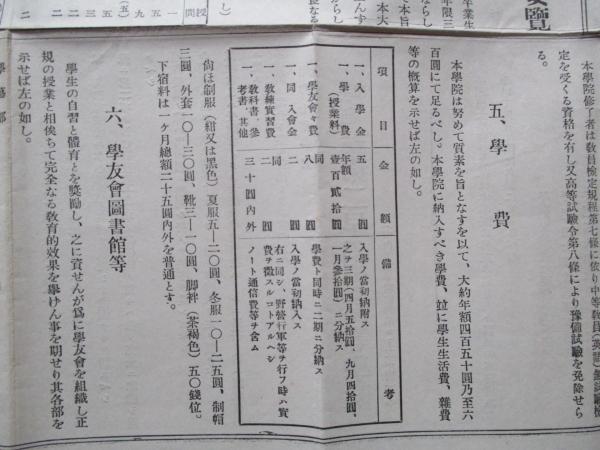 要覽
本學院修了者は教員檢定規程第七條に依り中等教員(英語)無試驗檢
定を受くる資格を有し又高等試驗令第八條により豫備試驗を免除せら
る。
五、學費
本學院は努めて質素を旨となすを以て、大約年額四百五十圓乃至六
百圓にて足るべし。本學院に納入すべき學費、竝に學生生活費、雜費
等の概算を示せば左の如し。
項目 金額 備考
一、入學金 五圓 入學ノ當初納附ス
一、學費(授業料) 年額壹百貳拾圓 之ヲ三期(四月五拾圓、九月四拾圓、
一月參拾圓)ニ分納ス
一、學友會々費 同八圓 學費ト同時ニ二期ニ分納ス
一、同入會金 二圓 入學ノ當初納入ス
一、教練實習費 同二圓 右ニ同シ、野營行軍等ヲ行フ時ハ實
費ヲ徵スルコトアルヘシ
一、教科書、參考書、其他 三十圓內外 ノート通信費等ヲ含ム
尙ほ制服(紺又は黑色)夏服五—二〇圓、冬服一〇—二五圓、制帽
三圓、外套一〇—三〇圓、靴三—一〇圓、脚袢(茶褐色)五〇錢位。
下宿料は一ケ月總額二十五圓內外を普通とす。
六、學友會圖書館等
學生の自習と體育とを奬勵し、之に資せんが爲に學友會を組織し正
規の授業と相俟ちて完全なる教育的效果を擧けん事を期せり其各部を
示せば左の如し。